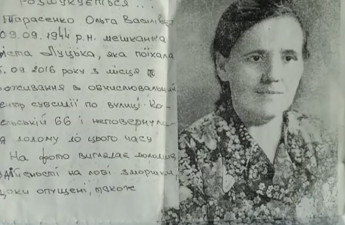 РОЗШУКУЄТЬСЯ...
Тарасенко Ольга Василів
09.09.1944 р.н. мешканка
міста Луцька, яка поїхала
.09 2016 року з місця
проживання в обчислювальний
центр субсидії по вулиці
66 і неповернул
додому до цього часу
На фото виглядає молодша
на лобі зморшки,
щоки опущені, також